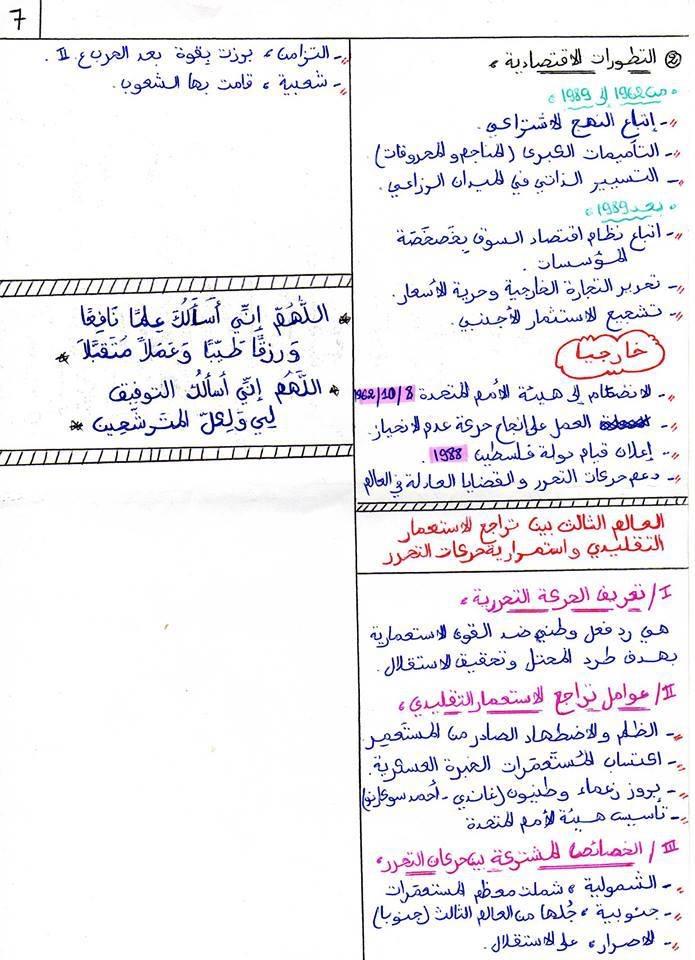 7
② التطورات الاقتصادية:
• من 1962 إلى 1989:
- إتباع النهج الاشتراكي.
- التأميمات الكبرى (المناجم والمحروقات).
- التسيير الذاتي في الميدان الزراعي.
• بعد 1989:
- اتباع نظام اقتصاد السوق بخصخصة
المؤسسات.
- تحرير التجارة الخارجية وحرية الأسعار.
- تشجيع الاستثمار الأجنبي.
خارجيا
- الانضمام إلى هيئة الأمم المتحدة 1962/10/8
- العمل على إنجاح حركة عدم الانحياز.
- إعلان قيام دولة فلسطين 1988.
- دعم حركات التحرر والقضايا العادلة في العالم
العالم الثالث بين تراجع الاستعمار
التقليدي واستمرارية حركات التحرر
I/ تعريف الحركة التحررية:
هي رد فعل وطني ضد القوى الاستعمارية
بهدف طرد المحتل وتحقيق الاستقلال.
II/ عوامل تراجع الاستعمار التقليدي:
- الظلم والاضطهاد الصادر من المستعمر.
- اكتساب المُستَعمَرات الخبرة العسكرية.
- بروز زعماء وطنيون (غاندي - أحمد سوكارنو)
- تأسيس هيئة الأمم المتحدة
III/ الخصائص المشتركة بين حركات التحرر:
- الشمولية: شملت معظم المستعمرات
- جنوبية: جُلها من العالم الثالث (جنوبا)
- الاصرار: على الاستقلال.
- التزامن: برزت بقوة بعد الحرب ع II.
- شعبية: قامت بها الشعوب.
* اللَّهُمَّ إِنِّي أَسْأَلُكَ عِلمًا نَافِعًا
وَرِزقًا طَيِّبًا وَعَمَلاً مُتَقَبَّلاً *
* اللَّهُمَّ إِنِّي أسألُكَ التوفيق
لِي وَلِكلّ المتَرشّحِين *